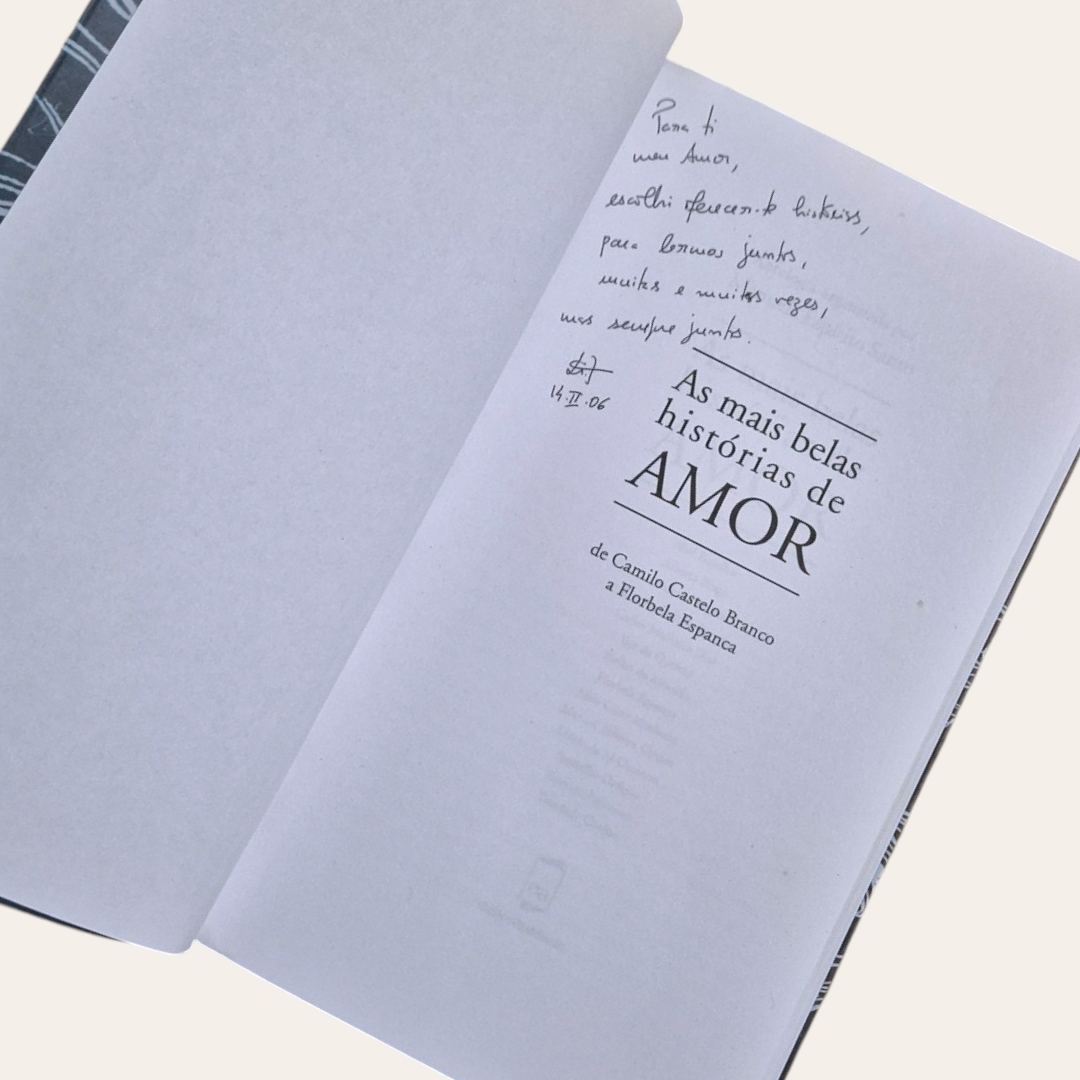 Para ti
meu Amor,
escolhi oferecer-te histórias,
para lermos juntos,
muitas e muitas vezes,
mas sempre juntos.
14.II.06
As mais belas
histórias de
AMOR
de Camilo Castelo Branco
a Florbela Espanca